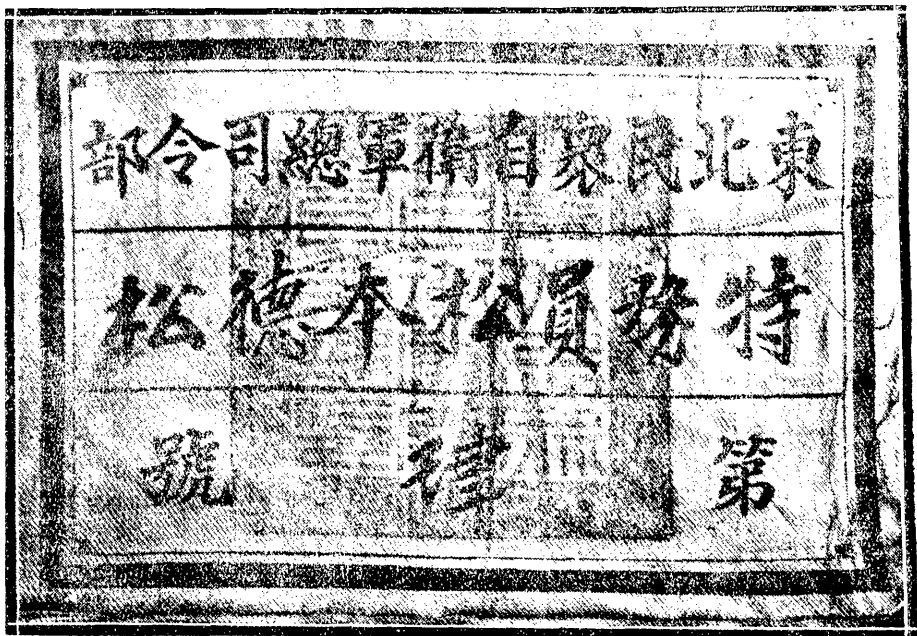 東北民衆自衛軍總司令部
特務員松本德松
第肆號